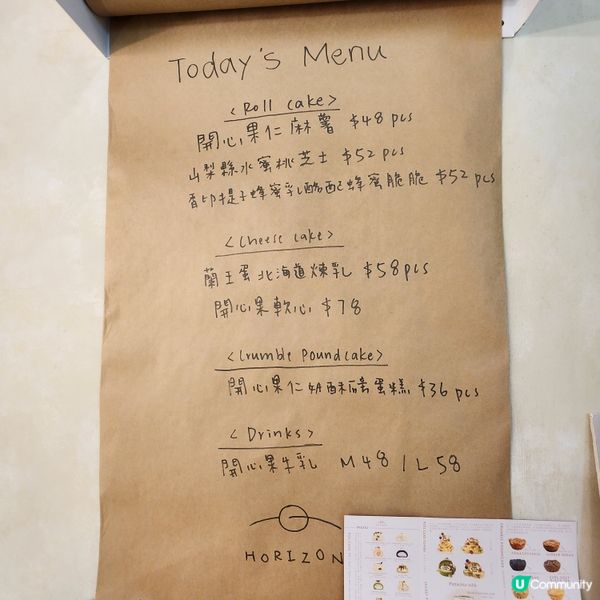 Today's Menu
<Roll Cake>
開心果仁麻薯 $48 pcs
山梨縣水蜜桃芝士 $52 pcs
香印提子蜂蜜乳酪配蜂蜜脆脆 $52 pcs
<Cheese Cake>
蘭王蛋北海道煉乳 $58 pcs
開心果軟心 $78
<Crumble Poundcake>
開心果仁奶酥磅蛋糕 $36 pcs
<Drinks>
開心果牛乳 M 48 / L 58
HORIZON
U Community